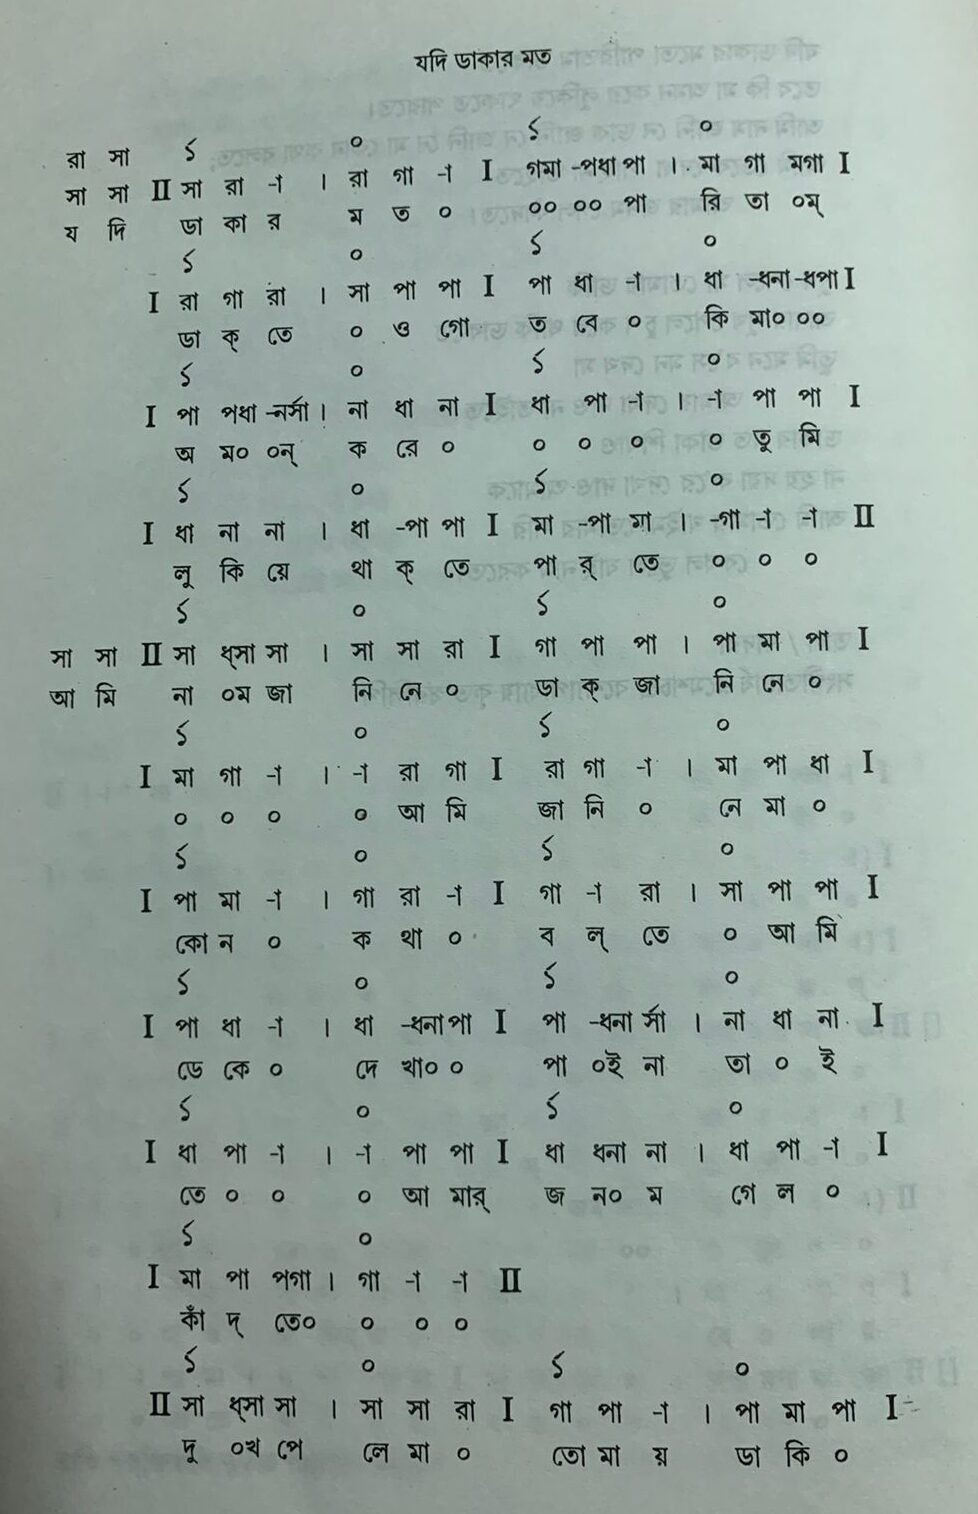 যদি ডাকার মত
রা সা ১ ০ ১ ০
সা সা II সা রা -া । রা গা -া I গমা -পধা পা । মা গা মগা I
য দি ডা কা র ম ত ০ ০০ ০০ পা রি তা ০ম্
১ ০ ১ ০
I রা গা রা । সা পা পা I পা ধা -া । ধা -ধনা -ধপা I
ডা ক্ তে ০ ও গো ত বে ০ কি মা০ ০০
১ ০ ১ ০
I পা পধা -নর্সা । না ধা না I ধা পা -া । -া পা পা I
অ ম০ ০ন্ ক রে ০ ০ ০ ০ ০ তু মি
১ ০ ১ ০
I ধা না না । ধা -পা পা I মা -পা মা । -গা -া -া II
লু কি য়ে থা ক্ তে পা র্ তে ০ ০ ০
১ ০ ১ ০
সা সা II সা ধ্সা সা । সা সা রা I গা পা পা । পা মা পা I
আ মি না ০ম জা নি নে ০ ডা ক্ জা নি নে ০
১ ০ ১ ০
I মা গা -া । -া রা গা I রা গা -া । মা পা ধা I
০ ০ ০ ০ আ মি জা নি ০ নে মা ০
১ ০ ১ ০
I পা মা -া । গা রা -া I গা -া রা । সা পা পা I
কো ন ০ ক থা ০ ব ল্ তে ০ আ মি
১ ০ ১ ০
I পা ধা -া । ধা -ধনা পা I পা -ধনা র্সা । না ধা না I
ডে কে ০ দে খা০ ০ পা ০ই না তা ০ ই
১ ০ ১ ০
I ধা পা -া । -া পা পা I ধা ধনা না । ধা পা -া I
তে ০ ০ ০ আ মার্ জ ন০ ম গে ল ০
১ ০
I মা পা পগা । গা -া -া II
কাঁ দ্ তে০ ০ ০ ০
১ ০ ১ ০
II সা ধ্সা সা । সা সা রা I গা পা -া । পা মা পা I
দু ০খ পে লে মা ০ তো মা য় ডা কি ০